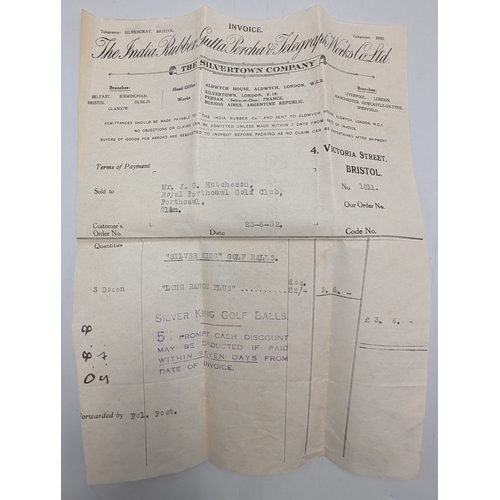 INVOICE.
Telegrams: SILVERGRAY, BRISTOL.
The India Rubber, Gutta Percha & Telegraph Works Co. Ltd.
THE SILVERTOWN COMPANY
Branches:
BELFAST, BIRMINGHAM,
BRISTOL, DUBLIN,
GLASGOW
Head Office:
Works
ALDWYCH HOUSE, ALDWYCH, LONDON, W.C.2.
SILVERTOWN, LONDON, E.16.
PERSAN, (Seine-et-Oise) FRANCE.
BUENOS AIRES, ARGENTINE REPUBLIC.
Branches:
LIVERPOOL, LONDON,
MANCHESTER, NEWCASTLE-ON-TYNE,
SHEFFIELD
REMITTANCES SHOULD BE MADE PAYABLE TO "THE INDIA RUBBER Co" AND SENT TO ALDWYCH HOUSE, ALDWYCH, LONDON, W.C.2.
NO OBJECTIONS OR CLAIM CAN BE ADMITTED UNLESS MADE WITHIN 7 DAYS FROM DATE OF INVOICE.
BUYERS OF GOODS FOR ABROAD ARE REQUESTED TO INSPECT BEFORE PACKING AS NO CLAIM CAN BE ENTERTAINED AFTER SHIPMENT.
4, VICTORIA STREET,
BRISTOL.
Terms of Payment
Sold to
Mr. J. G. Hutcheson,
Royal Porthcawl Golf Club,
Porthcawl,
Glam.
No. 1611.
Our Order No.
Customer's
Order No.
Date 22-6-32.
Code No.
Quantities
"SILVER KING" GOLF BALLS.
3 Dozen "LONG RANGE PLUS".......... doz 22/- 3. 6. -
SILVER KING GOLF BALLS.
5% PROMPT CASH DISCOUNT
MAY BE DEDUCTED IF PAID
WITHIN SEVEN DAYS FROM
DATE OF INVOICE.
Forwarded by Pcl. Post.